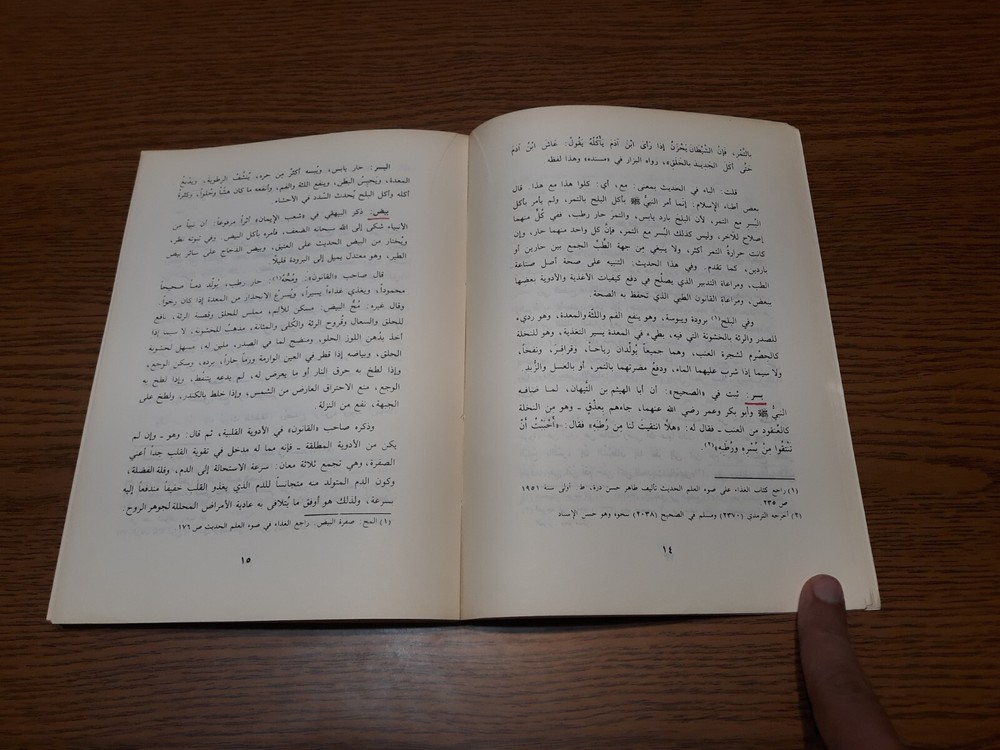 بالتَّمْر، فَإنَّ الشَّيْطَانَ يَحْزَنُ إذا رَأى ابْنَ آدَمَ يَأْكُلُهُ يَقُولُ: عَاشَ ابْنُ آدَمَ
حَتَّى أكَلَ الجَدِيدَ بالخَلَقِ»، رواه البزار في «مسنده» وهذا لفظه
قلت: الباء في الحديث بمعنى: مع، أي: كلوا هذا مع هذا. قال
بعض أطباء الإسلام: إنما أمر النبيُّ ﷺ بأكل البلح بالتمر، ولم يأمر بأكل
البُسر مع التمر، لأن البلح بارد يابس، والتمرَ حار رطب، ففي كُلٍّ منهما
إصلاح للآخر، وليس كذلك البُسر مع التمر، فإنَّ كل واحد منهما حار، وإن
كانت حرارةُ التمر أكثر، ولا ينبغي من جهة الطِّبِّ الجمع بين حارين أو
باردين، كما تقدم. وفي هذا الحديث: التنبيه على صحة أصل صناعة
الطب، ومراعاة التدبير الذي يصلُح في دفع كيفيات الأغذية والأدوية بعضها
ببعض، ومراعاة القانون الطبي الذي تُحفظ به الصحة.
وفي البلح(١) برودة ويبوسة، وهو ينفع الفم واللِّثَة والمعدة، وهو رديء
للصدر والرئة بالخشونة التي فيه، بطيء في المعدة يسير التغذية، وهو للنخلة
كالحِصْرِم لشجرة العنب، وهما جميعاً يُولِّدان رياحاً، وقَراقِرَ، ونفخاً،
ولا سيما إذا شرب عليهما الماء، ودفعُ مضرتهما بالتمر، أو بالعسل والزُّبد.
بسر: ثبت في «الصحيح»: أن أبا الهيثم بن التَّيهان، لما ضافه
النبيُّ ﷺ وأبو بكر وعمر رضي الله عنهما، جاءهم بعِذْقٍ - وهو من النخلة
كالعُنقود مِن العنب - فقال له: «هلَّا انتقيتَ لنا مِن رُطَبِهِ» فقال: «أَحْبَبْتُ أنْ
تَنْتَقُوا مِنْ بُسْرِهِ وَرُطَبِهِ»(٢)
(١) راجع كتاب الغذاء على ضوء العلم الحديث تأليف طاهر حسن درة، ط. أولى سنة ١٩٥١
ص ٢٣٥
(٢) أخرجه الترمذي (٢٣٧٠) ومسلم في الصحيح (٢٠٣٨) بنحوه وهو حسن الإسناد
١٤
البسر: حار يابس، ويُبسه أكثرُ مِن حره، يُنشِّفُ الرطوبة، ويَدْبَغُ
المعدة، ويَحبِسُ البطن، وينفع اللثة والفم، وأنفعه ما كان هشّاً وحُلواً، وكثرة
أكله وأكل البلح يُحدث السَّدد في الأحشاء.
بيض: ذكر البيهقي في «شعب الإيمان» أثراً مرفوعاً: أن نبياً من
الأنبياء شكى إلى الله سبحانه الضعف، فأمره بأكل البيض. وفي ثبوته نظر،
ويُختار من البيض الحديث على العتيق، وبيض الدجاج على سائر بيض
الطير، وهو معتدل يميل إلى البرودة قليلًا.
قال صاحب «القانون»: ومُحُّهُ(١): حار رطب، يُولِّد دماً صحيحاً
محموداً، ويغذي غذاءاً يسيراً، ويُسرعُ الانحدار من المعدة إذا كان رخواً.
وقال غيره: مُحُّ البيض: مسكن للألم، مملس للحلق وقصبة الرئة، نافع
للحلق والسعال وقُروح الرئة والكُلى والمثانة، مذهِبٌ للخشونة، لا سيما إذا
أخذ بدُهن اللوز الحلو، ومنضج لما في الصدر، ملين له، مسهل لخشونة
الحلق، وبياضه إذا قطر في العين الوارمة ورماً حاراً، برده، وسكن الوجع،
وإذا لطخ به حرق النار أو ما يعرض له، لم يدعه يتنفَّط، وإذا لطخ به
الوجع، منع الاحتراق العارض من الشمس، وإذا خلط بالكندر، ولطخ على
الجبهة، نفع من النزلة.
وذكره صاحب «القانون» في الأدوية القلبية، ثم قال: وهو - وإن لم
يكن من الأدوية المطلقة - فإنه مما له مدخل في تقوية القلب جداً أعني
الصفرة، وهي تجمع ثلاثة معان: سرعة الاستحالة إلى الدم، وقلة الفضلة،
وكون الدم المتولد منه متجانساً للدم الذي يغذو القلبَ خفيفاً مندفعاً إليه
بسرعة، ولذلك هو أوفق ما يُتلافى به عادية الأمراض المحللة لجوهر الروح.
(١) المح: صفرة البيض. راجع الغذاء في ضوء العلم الحديث ص ١٧٦
١٥